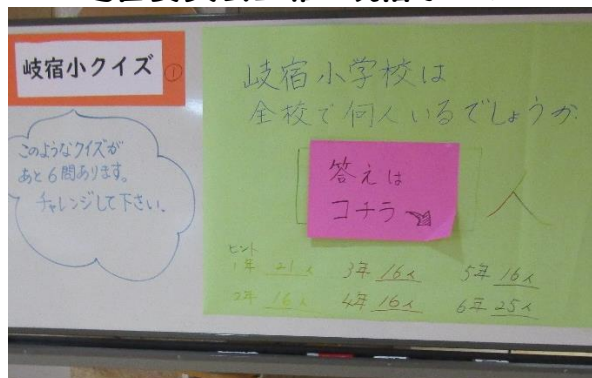 岐宿小クイズ①
このようなクイズが
あと6問あります。
チャレンジして下さい。
岐宿小学校は
全校で何人いるでしょうか
答えは
コチラ
人
ヒント
1年 21人 3年 16人 5年 16人
2年 16人 4年 16人 6年 25人